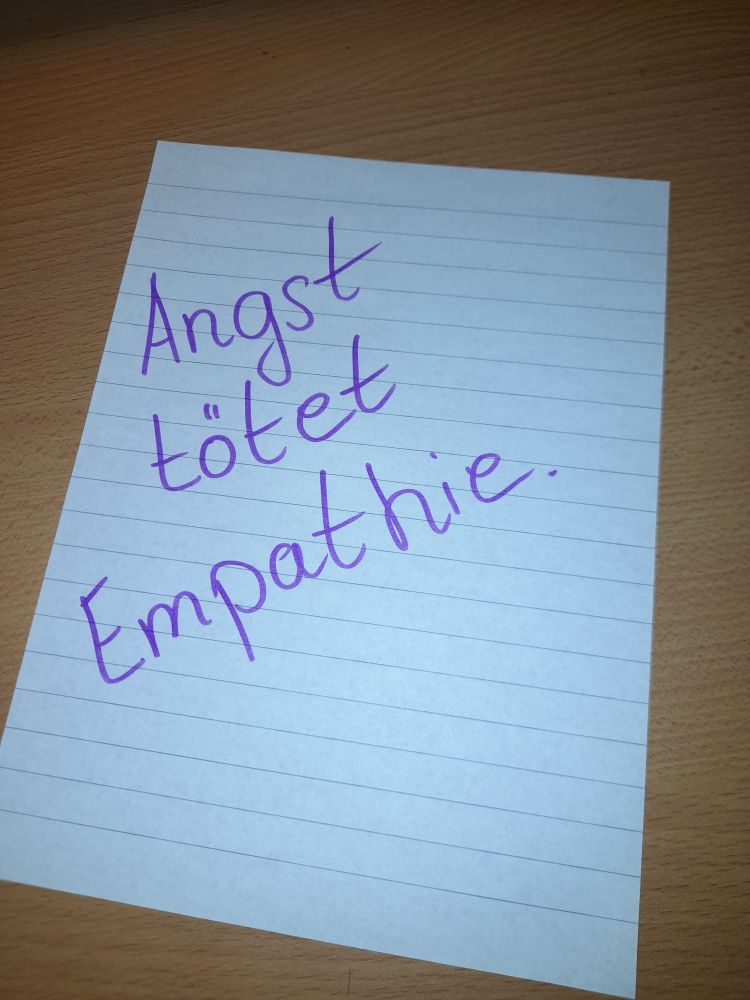 Angst
tötet
Empathie.